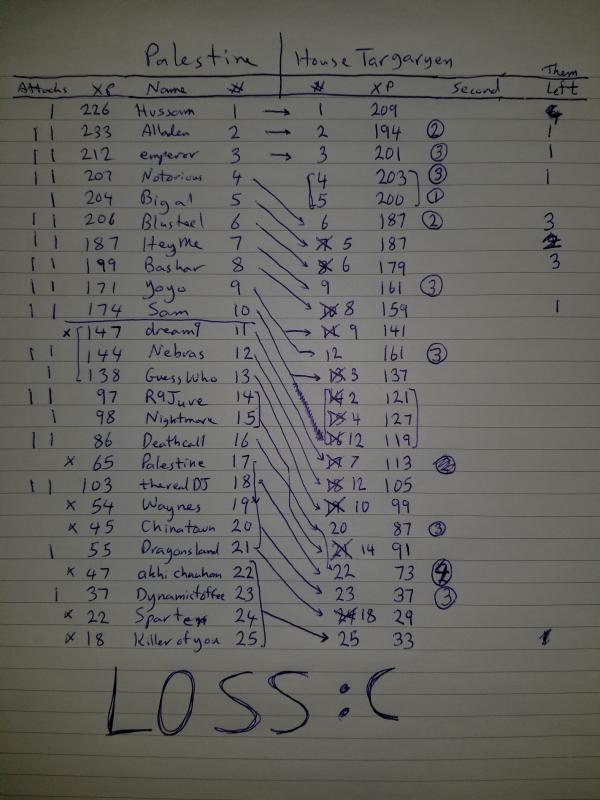 Palestine House Targaryen
Attacks XP Name # # XP Second Them Left
| 226 Hussam 1 → 1 209
|| 233 Alladen 2 → 2 194 ② 1
|| 212 emperor 3 → 3 201 ③ 1
|| 207 Notorious 4 4 203 ③ 1
| 204 Bigal 5 5 200 ①
|| 206 Blusteel 6 6 187 ② 3
|| 187 HeyMe 7 5 187
|| 199 Bashar 8 6 179 3
|| 171 yoyo 9 9 161 ③
|| 174 Sam 10 8 159 1
x 147 dream9 11 9 141
|| 144 Nebras 12 12 161 ③
| 138 GuessWho 13 3 137
|| 97 R9Juve 14 2 121
| 98 Nightmare 15 4 127
|| 86 Deathcall 16 12 119
x 65 Palestine 17 7 113 ②
|| 103 theredDJ 18 12 105
x 54 Waynes 19 10 99
x 45 Chinatown 20 20 87 ③
| 55 Dragonsland 21 21 14 91
x 47 akhi chauhan 22 22 73 ④
| 37 Dynamictoffee 23 23 37 ③
x 22 Sparten 24 24 18 29
x 18 Killer of you 25 25 33
LOSS :(